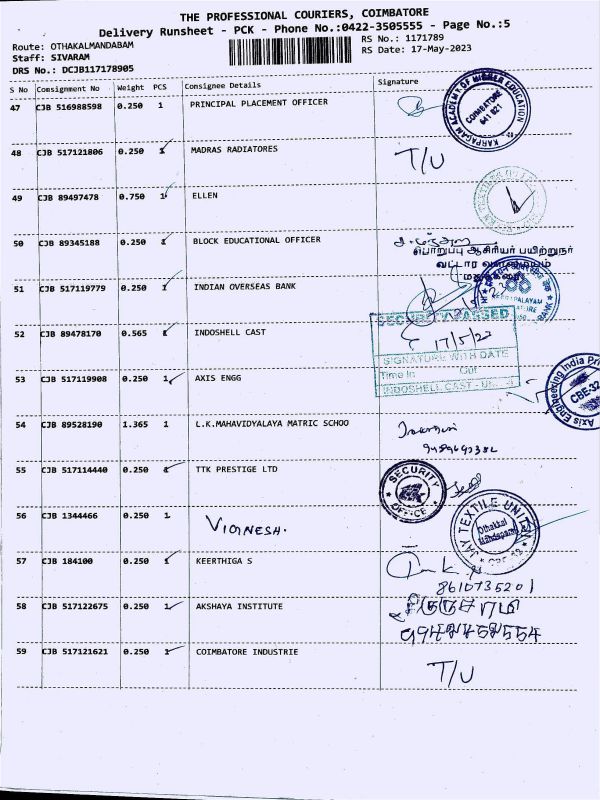 THE PROFESSIONAL COURIERS, COIMBATORE
Delivery Runsheet - PCK - Phone No.:0422-3505555 - Page No.:5
Route: OTHAKALMANDABAM
Staff: SIVARAM
DRS No.: DCJB117178905
RS No.: 1171789
RS Date: 17-May-2023
S No Consignment No Weight PCS Consignee Details Signature
47 CJB 516988598 0.250 1 PRINCIPAL PLACEMENT OFFICER
KARPAGAM ACADEMY OF HIGHER EDUCATION
COIMBATORE
641 021
48 CJB 517121806 0.250 1 MADRAS RADIATORES T/U
49 CJB 89497478 0.750 1 ELLEN
50 CJB 89345188 0.250 1 BLOCK EDUCATIONAL OFFICER
பொறுப்பு ஆசிரியர் பயிற்றுநர்
வட்டார வளமையம்
51 CJB 517119779 0.250 1 INDIAN OVERSEAS BANK
BANK
52 CJB 89478170 0.565 1 INDOSHELL CAST
SECURITY PASSED
17/5/23
SIGNATURE WITH DATE
Time In Out
INDOSHELL CAST - UNIT
53 CJB 517119908 0.250 1 AXIS ENGG
Axis Engineering India
CBE-32
54 CJB 89528190 1.365 1 L.K.MAHAVIDYALAYA MATRIC SCHOO
55 CJB 517114440 0.250 1 TTK PRESTIGE LTD
SECURITY
OFFICE
56 CJB 1344466 0.250 1 VIGNESH.
JAY TEXTILE UNIT
Othakkal
Mandapam
57 CJB 184100 0.250 1 KEERTHIGA S
8610735201
58 CJB 517122675 0.250 1 AKSHAYA INSTITUTE
59 CJB 517121621 0.250 1 COIMBATORE INDUSTRIE T/U